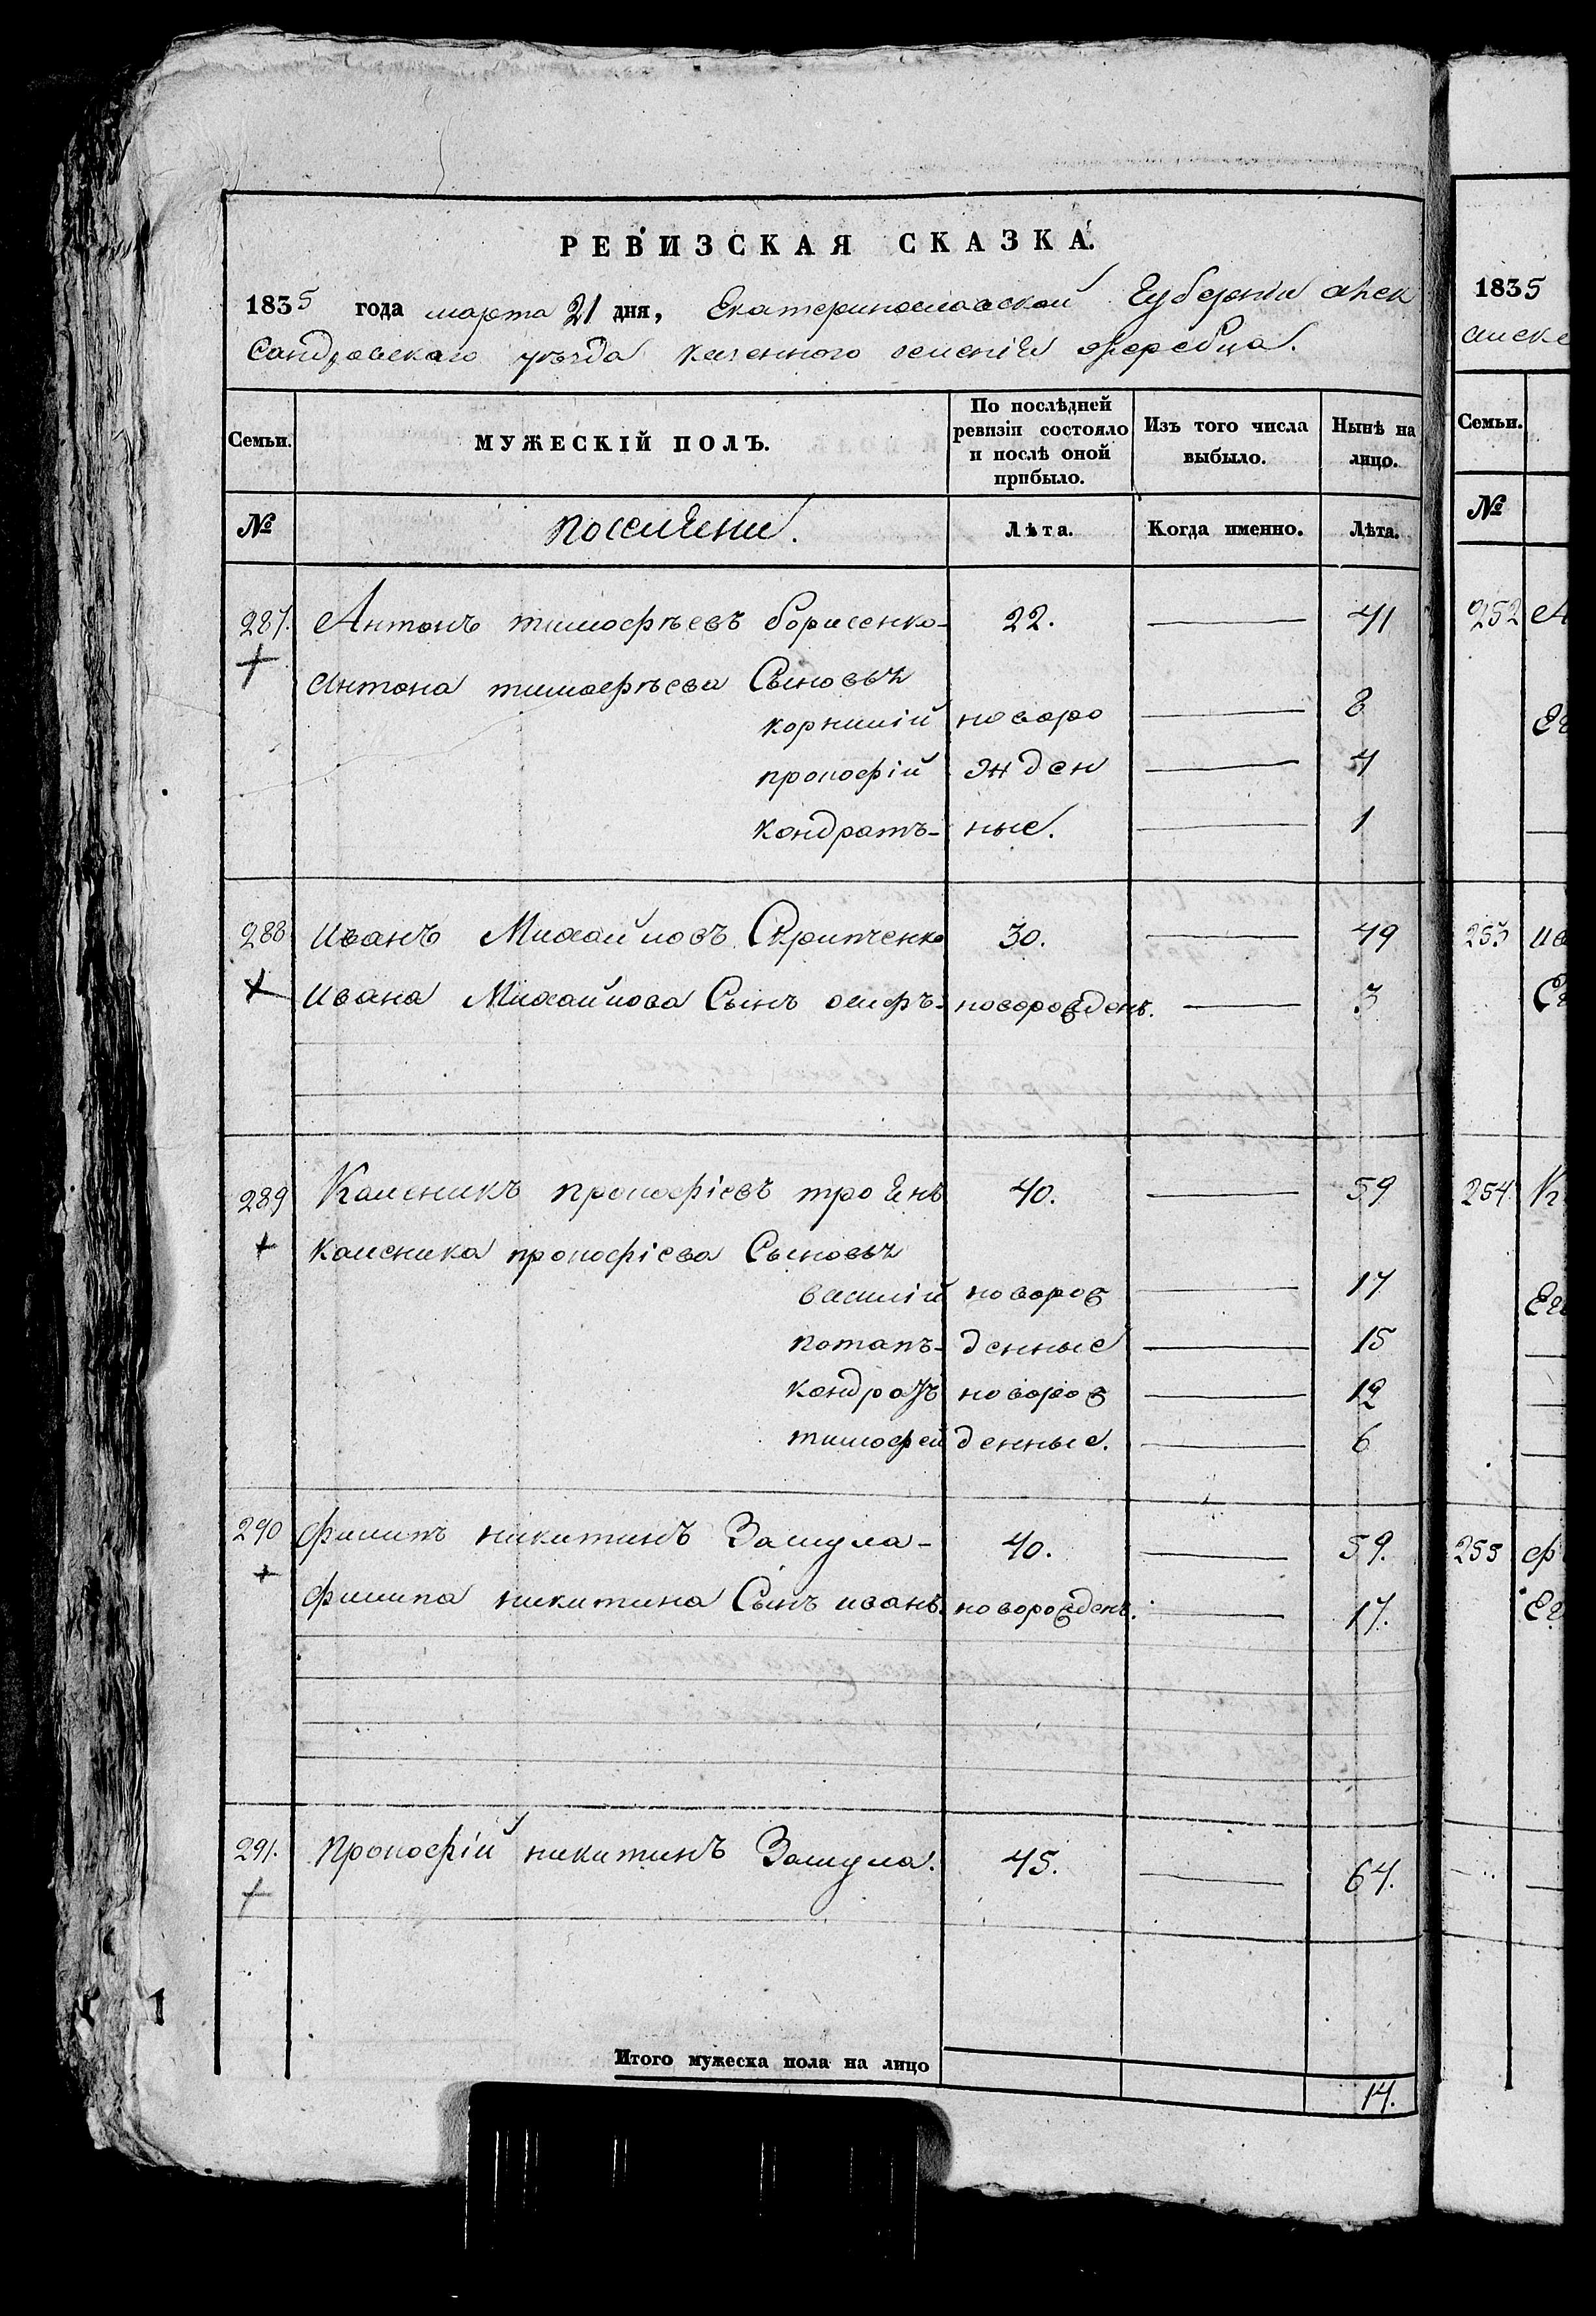 РЕВИЗСКАЯ СКАЗКА.
1835 года марта 21 дня, Екатеринославской Губерніи алек
сандровскаго уѣзда казенного селенія жеребца.
Семьи.
МУЖЕСКІЙ ПОЛЪ.
По послѣдней ревизіи состояло и послѣ оной прибыло.
Изъ того числа выбыло.
Нынѣ на лицо.
№
поселяни.
Лѣта.
Когда именно.
Лѣта.
287. Антонъ тимофѣевъ борисенко 22. 41
Антона тимофѣева Сыновья
корнилій новоро 8
прокофій жден 4
кондратъ ные. 1
288 иванъ Михайловъ Скрипченко 30. 49
ивана Михайлова Сынъ осифъ новорожденъ. 3
289 Каленикъ прокофіевъ троянъ 40. 59
Каленика прокофіева Сыновья
василій новорож 17
потапъ денные 15
кондратъ новорож 12
тимофей денные. 6
290 филипъ никитинъ Зашула 40. 59.
филипа никитина Сынъ иванъ новорожденъ. 17.
291. прокофій никитинъ Зашула. 45. 64.
Итого мужеска пола на лицо
14.
1835
Семьи.
№
252
253
254
255